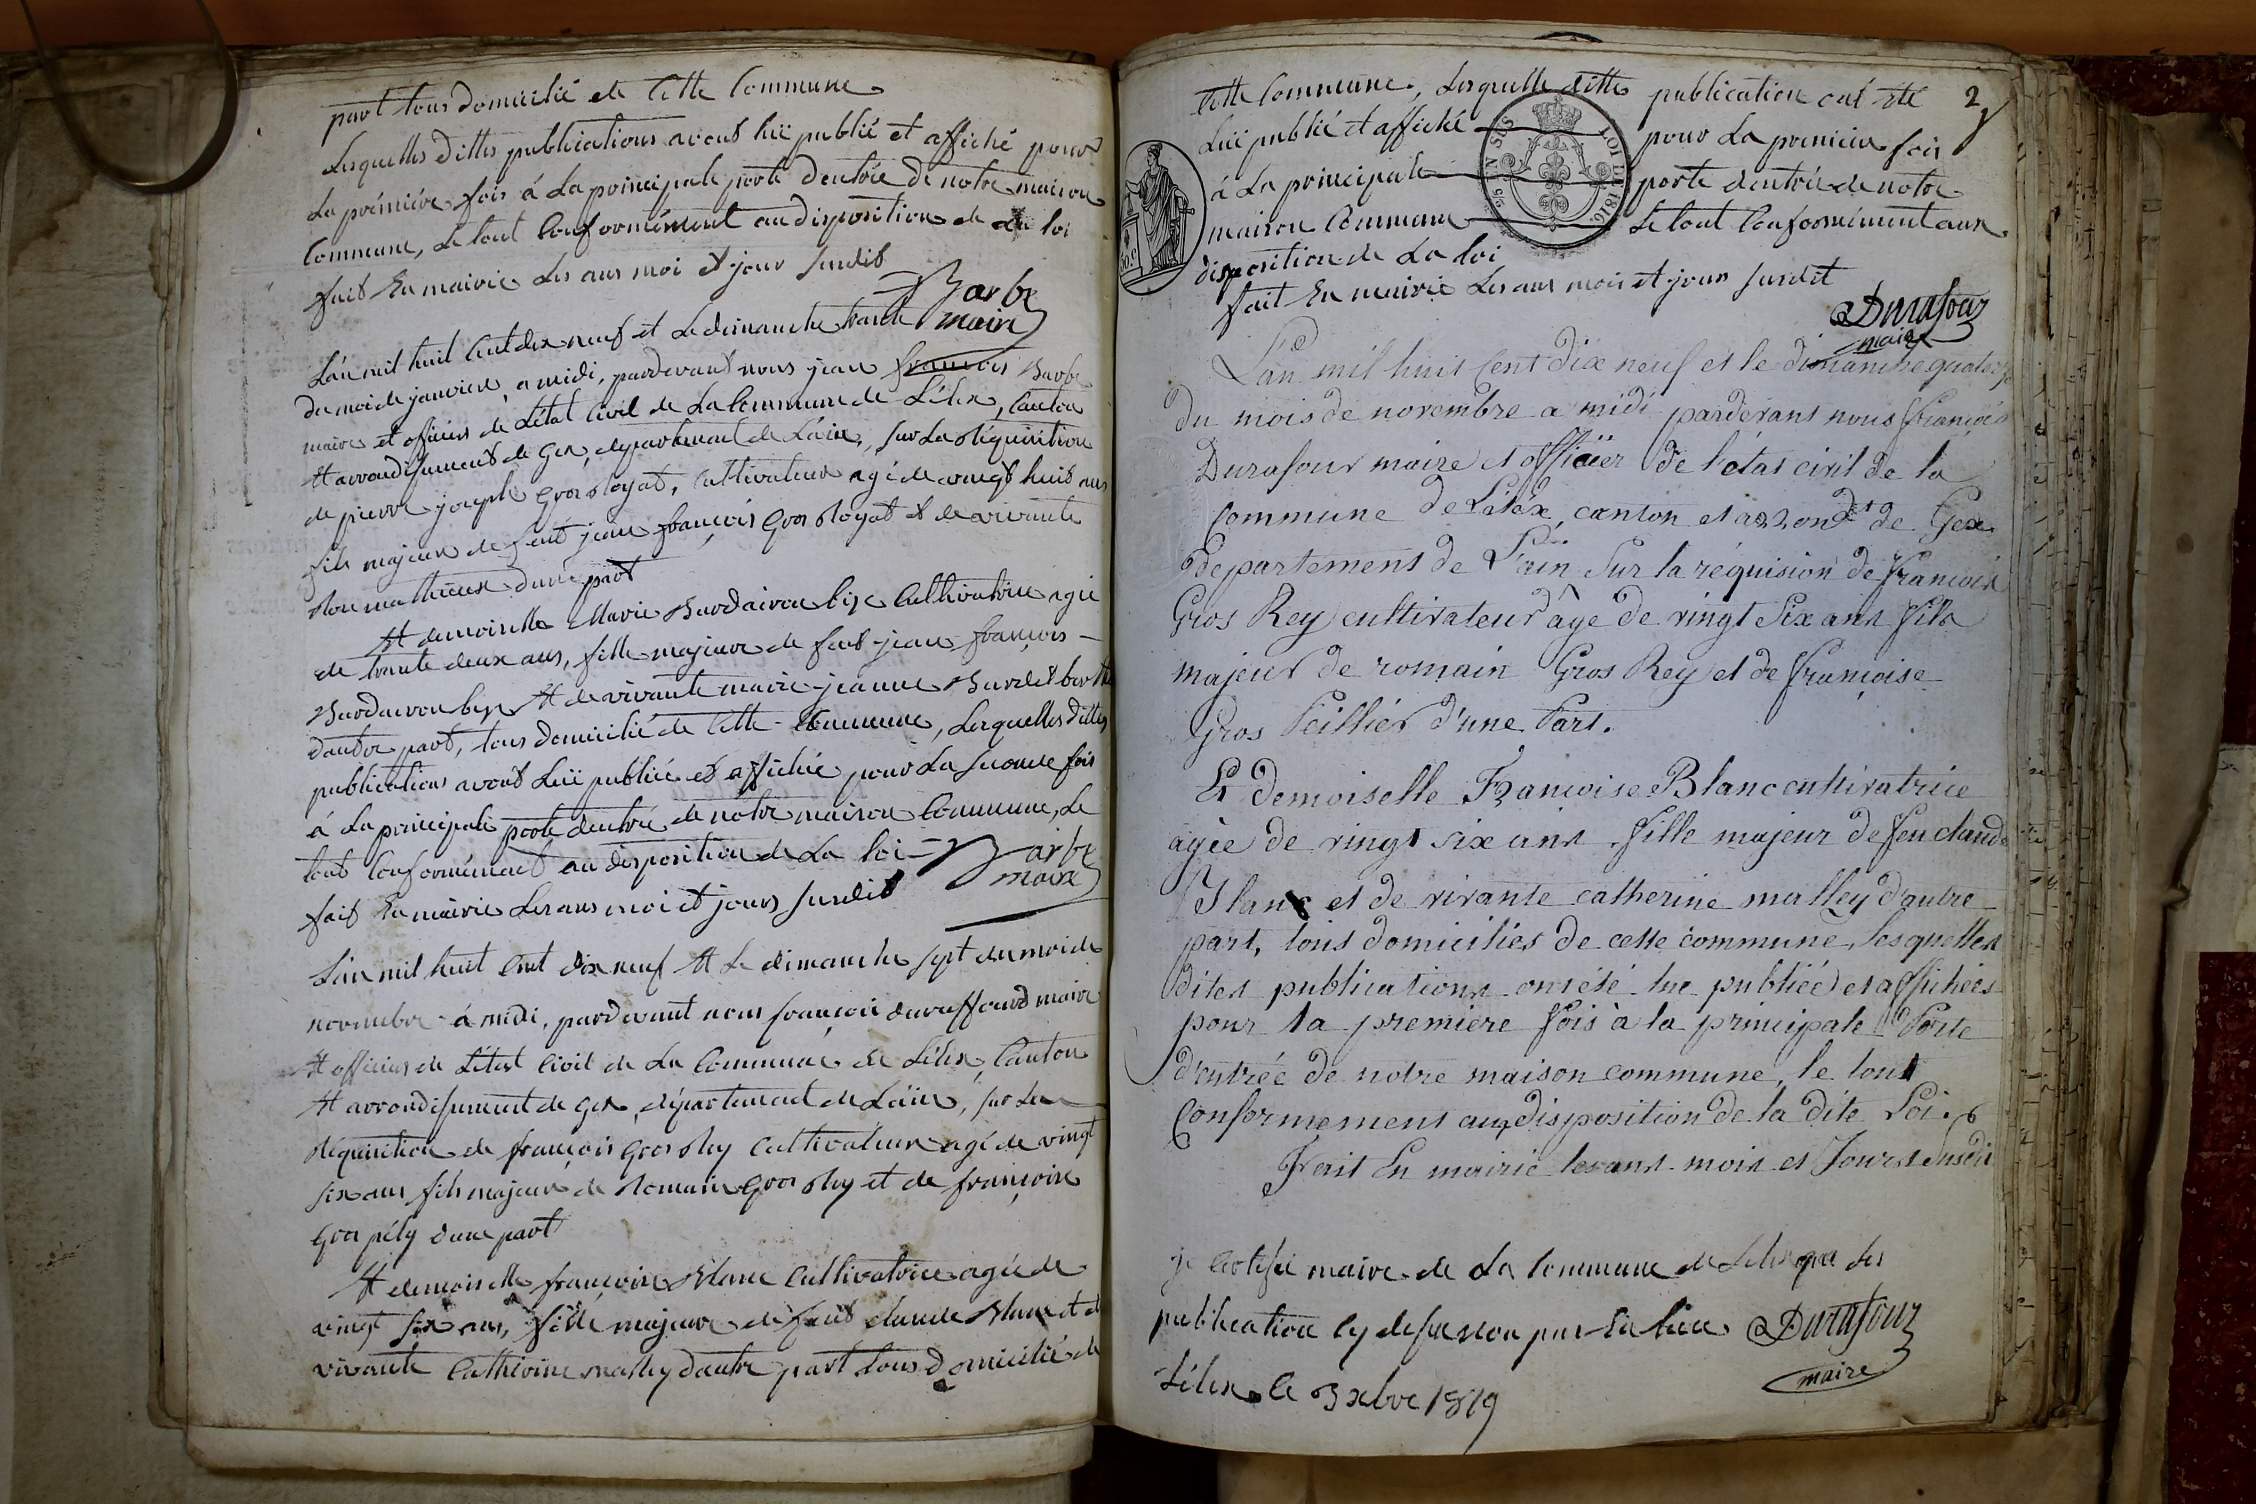 part tous domicilié de Cette Commune
Lesquelles dittes publications avont lüe publié et affiché pour
La première fois á La principale porte d'entrée de notre maison
Commune, Le tout Conformément au disposition de La loi
fait En mairie Les ans moi et jour susdit
Barbe
maire
L'an mil huit Cent dix neuf et Le dimanche trante
du moi de janvier a midi, pardevant nous jean francois Barbe
maire et officier de L'état Civil de La Commune de Lélex, Canton
Et arrondissement de Gex, departement de L'ain, sur La réquisition
de pierre joseph Gros Royat, Cultivateur agé de vingt huit ans
fils majeur de feut jean françois Gros Royat et de vivante
mathieux d'une part
Et demoiselle Marie Burdairon bix Cultivatrice agée
de trante deux ans, fille majeure de feut jean françois
Burdairon bix Et de vivante marie jeanne
dautre part, tous domicilié de Cette Commune, Lesquelles dittes
publications avont Lüe publié et affichée pour La seconde fois
á La principale porte d'entrée de nôtre maison Commune, Le
tout Conformément au disposition de La loi
Barbe
maire
fait En mairie Les ans moi et jours susdit
L'an mil huit Cent dix neuf Et Le dimanche sept du moi de
novembre á midi, pardevant nous françois duraffourd maire
Et officier de L'état Civil de La Commune de Lélex, Canton
Et arrondissement de Gex, département de L'ain, sur La
Réquisition de françois Gros Rey Cultivateur agé de vingt
six ans fils majeur de Romain Gros Rey et de françoise
Gros pély d'une part
Et demoiselle françoise Blanc Cultivatrice agée de
vingt six ans, fille majeure de feut claude Blanc et de
vivante Catherine malley dautre part tous domicilié de
2
Cette Commune, Lesquelle ditte publication ont été
Lüe publié et affiché pour La premiere fois
á La principale porte d'entrée de notre
maison Commune Le tout Conformément aux
disposition de La loi
fait En mairie Les ans mois et jour susdit
Durafour
maire
TIMBRE
LOI DE 1816.
L'an mil huit Cent dix neuf et le dimanche quatorze
du mois de novembre a midi pardevant nous François
Durafour maire et officier de l'état civil de la
Commune de Lélex, canton et arrondt. de Gex
departement de L'ain Sur la réquision de François
Gros Rey cultivateur âge de vingt Six ans fils
majeur de romain Gros Rey et de françoise
Gros Peillier d'une Part.
Et demoiselle Françoise Blanc cultivatrice
agée de vingt six ans fille majeur de feu claude
Blanc et de vivante catherine malley d'autre
part, tous domiciliés de cette commune, lesquelles
dites publications ont été lue publiée et affichées
pour la premiere fois à la principale Porte
d'entrée de notre maison commune, le tout
Conformement aux disposition de la dite Loi.
Fait En mairie les ans mois et Jours Susdit
je Certifie maire de La Commune de Lelex que Les
publication cy dessus non pas Eu lieu
Durafour
maire
Lélex le 3 xbre 1819